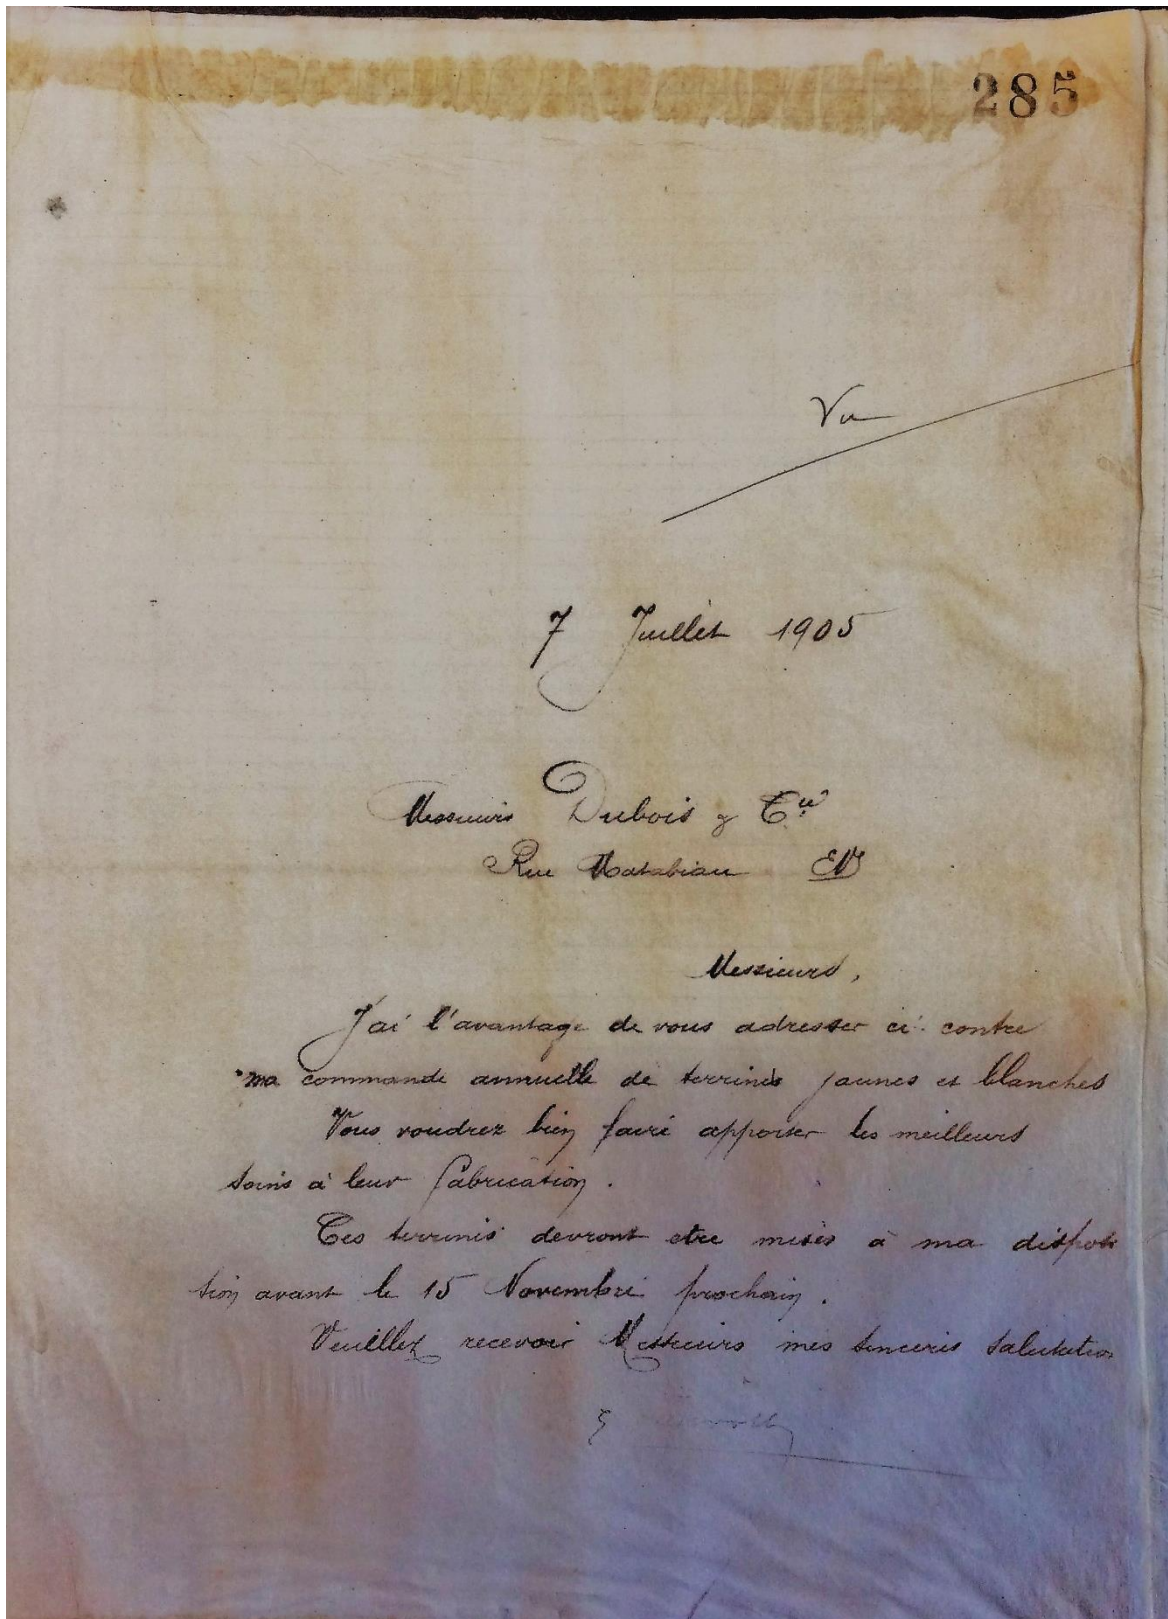 285
Vu
7 Juillet 1905
Messieurs Dubois & Cie
Rue Matabiau EV
Messieurs,
J'ai l'avantage de vous adresser ci-contre
ma commande annuelle de terrines jaunes et blanches
Vous voudrez bien faire apporter les meilleurs
soins à leur fabrication.
Ces terrines devront etre mises à ma disposi
tion avant le 15 Novembre prochain.
Veuillez recevoir Messieurs mes sinceres salutations